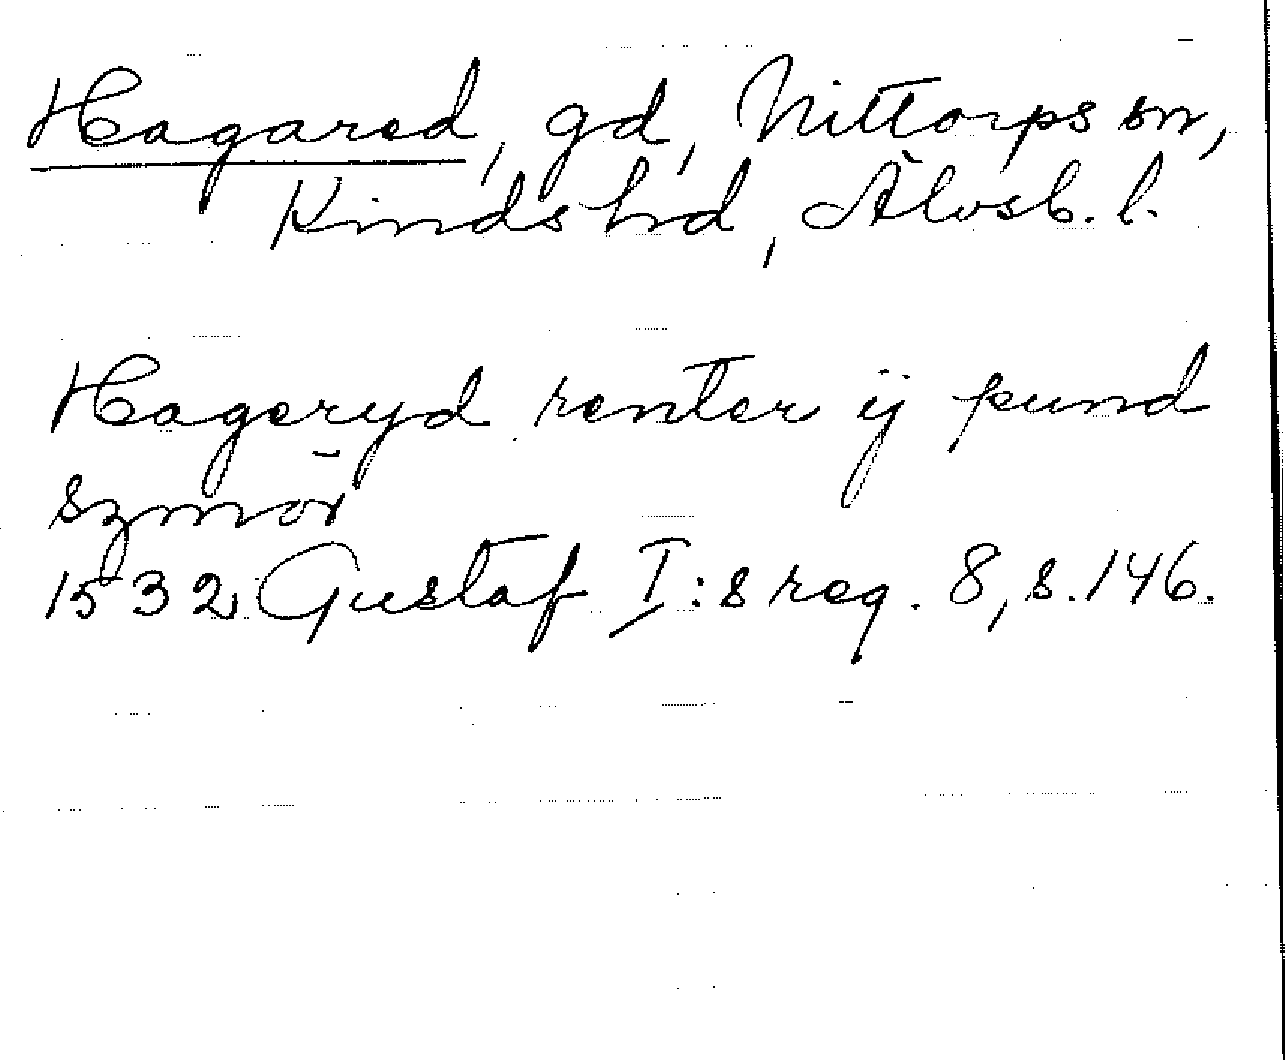 Hagared, gd, Nittorps sn,
Kinds hd, Älvsb. l.
Hageryd renter ij pund
szmör
1532 Gustaf I:s reg. 8, s. 146.